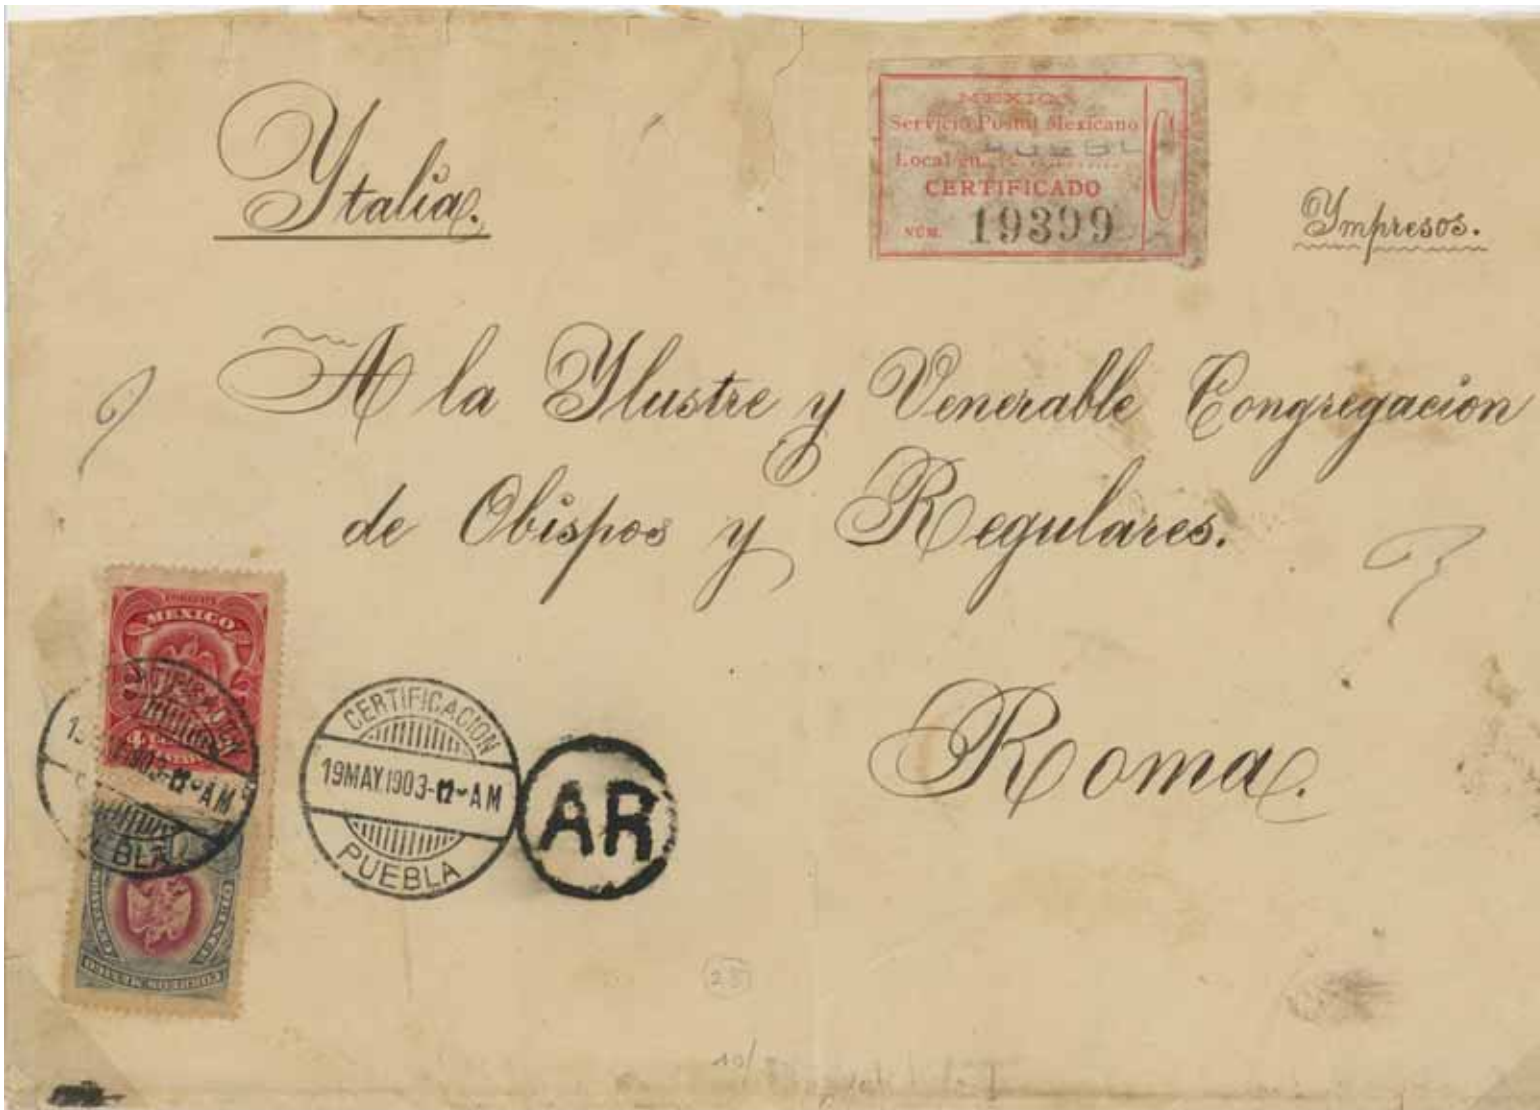 Ytalia.
MEXICO
Servicio Postal Mexicano
Local en
CERTIFICADO
NÚM. 19399
Ympresos.
A la Ylustre y Venerable Congregacion
de Obispos y Regulares.
Roma.
MEXICO
1903-12-AM
CERTIFICACION
19MAY.1903-12-AM
PUEBLA
AR
CORREOS MEXICO
25
10/